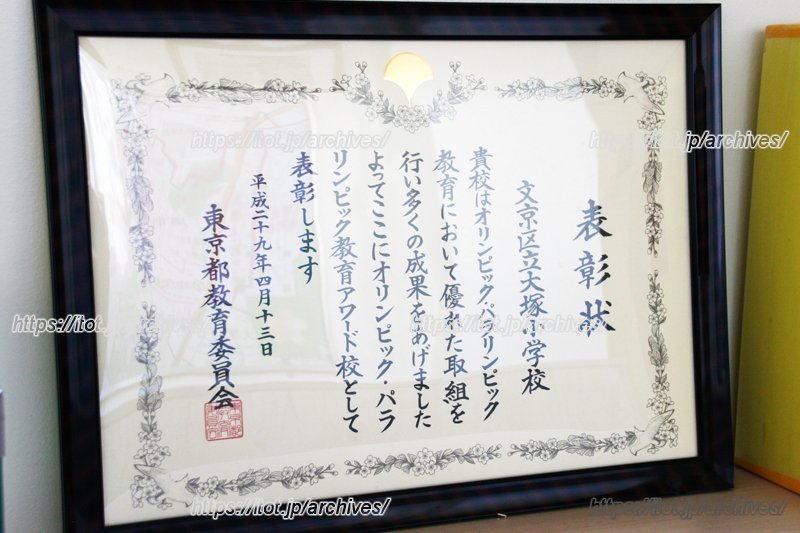 表彰状
文京区立大塚小学校
貴校はオリンピック・パラリンピック
教育において優れた取組を
行い多くの成果をあげました
よってここにオリンピック・パラ
リンピック教育アワード校として
表彰します
平成二十九年四月十三日
東京都教育委員会
https://itot.jp/archives/
https://itot.jp/archives/
https://itot.jp/archives/
https://itot.jp/archives/
https://itot.jp/archives/
https://itot.jp/archives/
https://itot.jp/archives/